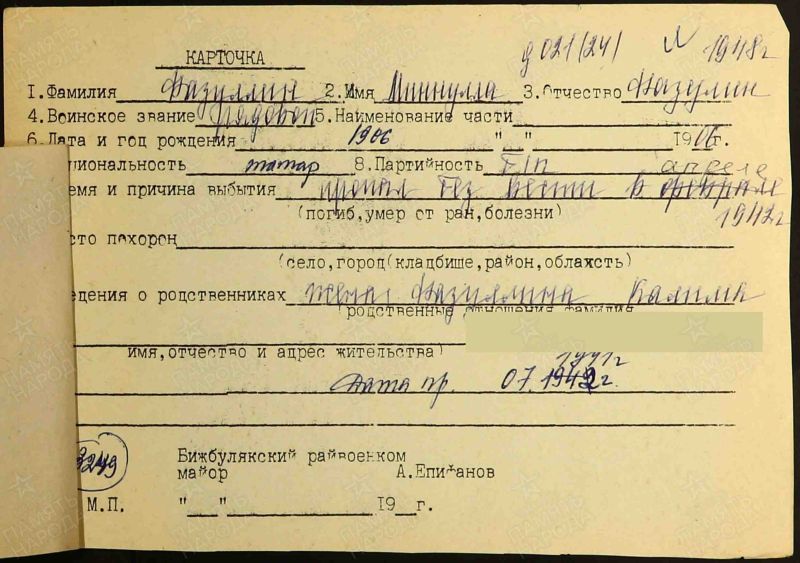 КАРТОЧКА
д 021/241 1948 г
1.Фамилия Фазуллин 2.Имя Миннулла 3.Отчество Фазулин
4.Воинское звание рядовой 5.Наименование части
6.Дата и год рождения 1906 " " 1906г.
циональность татар 8.Партийность б/п апреле
емя и причина выбытия пропал без вести в феврале
(погиб,умер от ран,болезни) 1942 г
сто похорон
(село,город(кладбище,район,облахсть)
едения о родственниках жена Фазуллина Калима
(родственные отношения фамилия
имя,отчество и адрес жительства)
Дата пр. 07. 1942 г.
3249
Бижбулякский райвоенком
майор А.Епифанов
М.П. " " 19 г.
ПАМЯТЬ НАРОДА